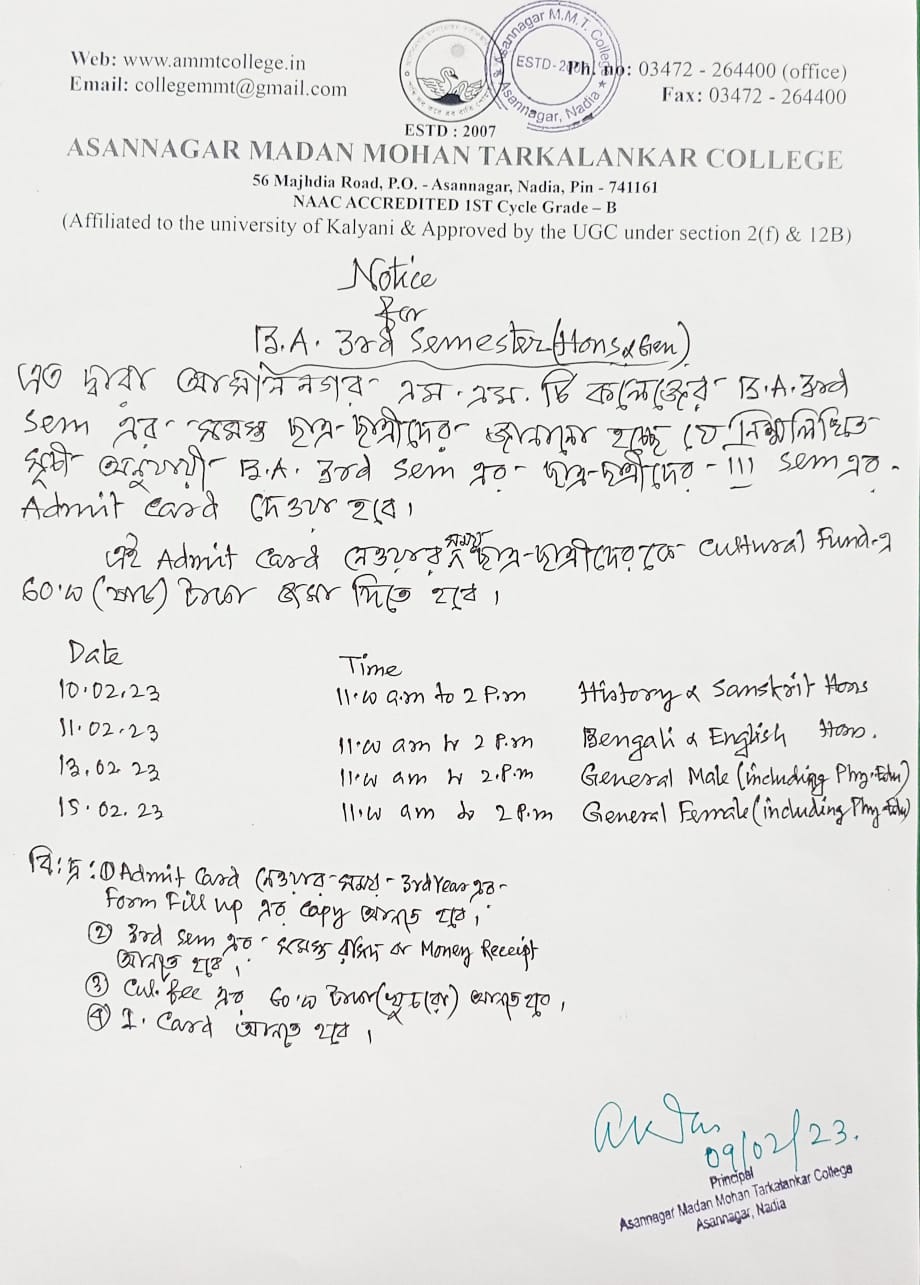 Web: www.ammtcollege.in
Email: collegemmt@gmail.com
Asannagar M.M.T. College
ESTD-2
Asannagar, Nadia
Ph. no: 03472 - 264400 (office)
Fax: 03472 - 264400
ESTD : 2007
ASANNAGAR MADAN MOHAN TARKALANKAR COLLEGE
56 Majhdia Road, P.O. - Asannagar, Nadia, Pin - 741161
NAAC ACCREDITED 1ST Cycle Grade – B
(Affiliated to the university of Kalyani & Approved by the UGC under section 2(f) & 12B)
Notice
for
B.A. 3rd Semester (Hons & Gen)
এত দ্বারা আসাননগর এম.এম. টি কলেজের B.A. 3rd
Sem এর সমস্ত ছাত্র-ছাত্রীদের জানানো হচ্ছে যে নিম্নলিখিত
সূচী অনুযায়ী B.A. 3rd Sem এর ছাত্র-ছাত্রীদের III Sem এর
Admit Card দেওয়া হবে।
এই Admit Card নেওয়ার সময় ছাত্র-ছাত্রীদেরকে Cultural Fund-এ
60.00 (ষাট) টাকা জমা দিতে হবে।
Date Time
10.02.23 11.00 a.m to 2 P.m History & Sanskrit Hons
11.02.23 11.00 am to 2 P.m Bengali & English Hons.
13.02.23 11.00 am to 2.P.m General Male (including Phy.Edu)
15.02.23 11.00 am to 2 P.m General Female (including Phy Edu)
বি:দ্র: ① Admit Card নেওয়ার সময় 3rd Year এর
Form Fill up এর Copy আনতে হবে।
② 3rd Sem এর সমস্ত রসিদ or Money Receipt
আনতে হবে।
③ Cul. fee এর 60.00 টাকা (খুচরো) আনতে হবে।
④ I. Card আনতে হবে।
09/02/23.
Principal
Asannagar Madan Mohan Tarkalankar College
Asannagar, Nadia